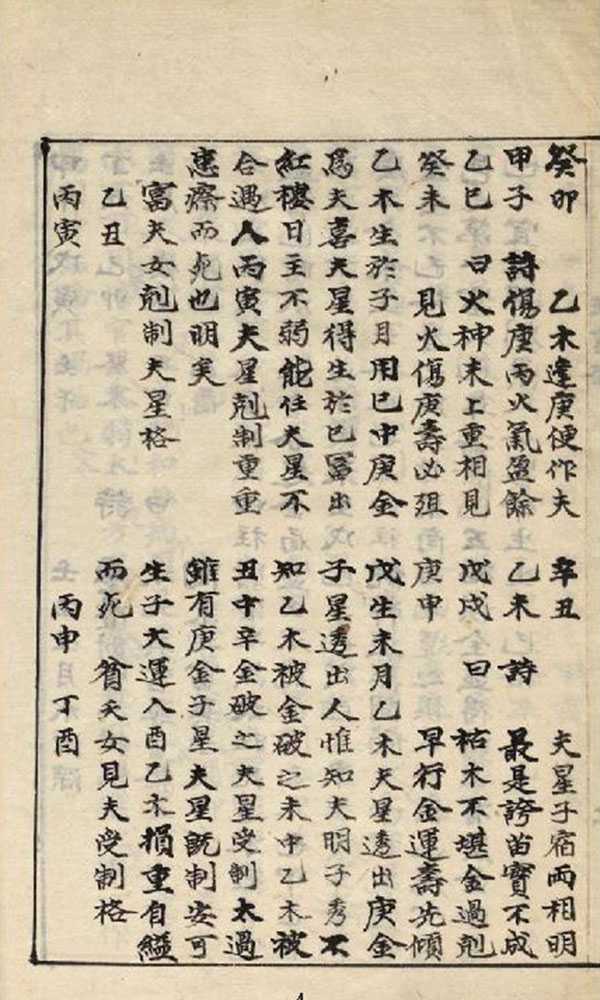 癸卯 乙木逢庚便作夫
甲子 詩傷庚丙火氣盈餘
乙巳 曰火神未上重相見
癸未 見火傷庚壽必殂
乙木生於子月用巳中庚金
爲夫喜夫星得生於巳冨出
紅樓日主不弱能任夫星不
合遇人丙寅夫星剋制重重
患瘵而死也明矣
富夫女剋制夫星格
乙丑
丙寅
辛丑 夫星子宿兩相明
乙未 詩 最是誇苗實不成
戊戌 曰 枯木不堪金過剋
庚申 早行金運壽先傾
戊生未月乙木夫星透出庚金
子星透出人惟知夫明子秀不
知乙木被金破之未中乙木被
丑中辛金破之夫星受制太過
雖有庚金子星夫星既制安可
生子大運入酉乙木損重自縊
而死 貧夭女見夫受制格
丙申 丁酉